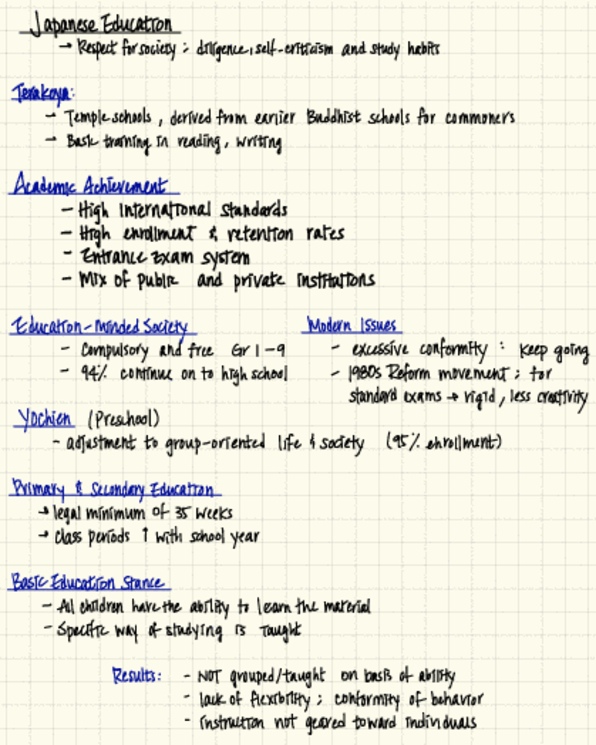 Japanese Education
→ Respect for society : diligence, self-criticism and study habits
Terakoya:
- Temple schools, derived from earlier Buddhist schools for commoners
- Basic training in reading, writing
Academic Achievement
- High International Standards
- High enrollment & retention rates
- Entrance Exam system
- Mix of public and private institutions
Education-Minded Society
- Compulsory and free Gr 1-9
- 94% continue on to high school
Modern Issues
- excessive conformity : keep going
- 1980s Reform movement ; for
standard exams → rigid, less creativity
Yochien (Preschool)
- adjustment to group-oriented life & society (95% enrollment)
Primary & Secondary Education
→ legal minimum of 35 weeks
→ class periods ↑ with school year
Basic Education Stance
- All children have the ability to learn the material
- Specific way of studying is taught
Results: - NOT grouped/taught on basis of ability
- lack of flexibility ; conformity of behavior
- instruction not geared toward individuals